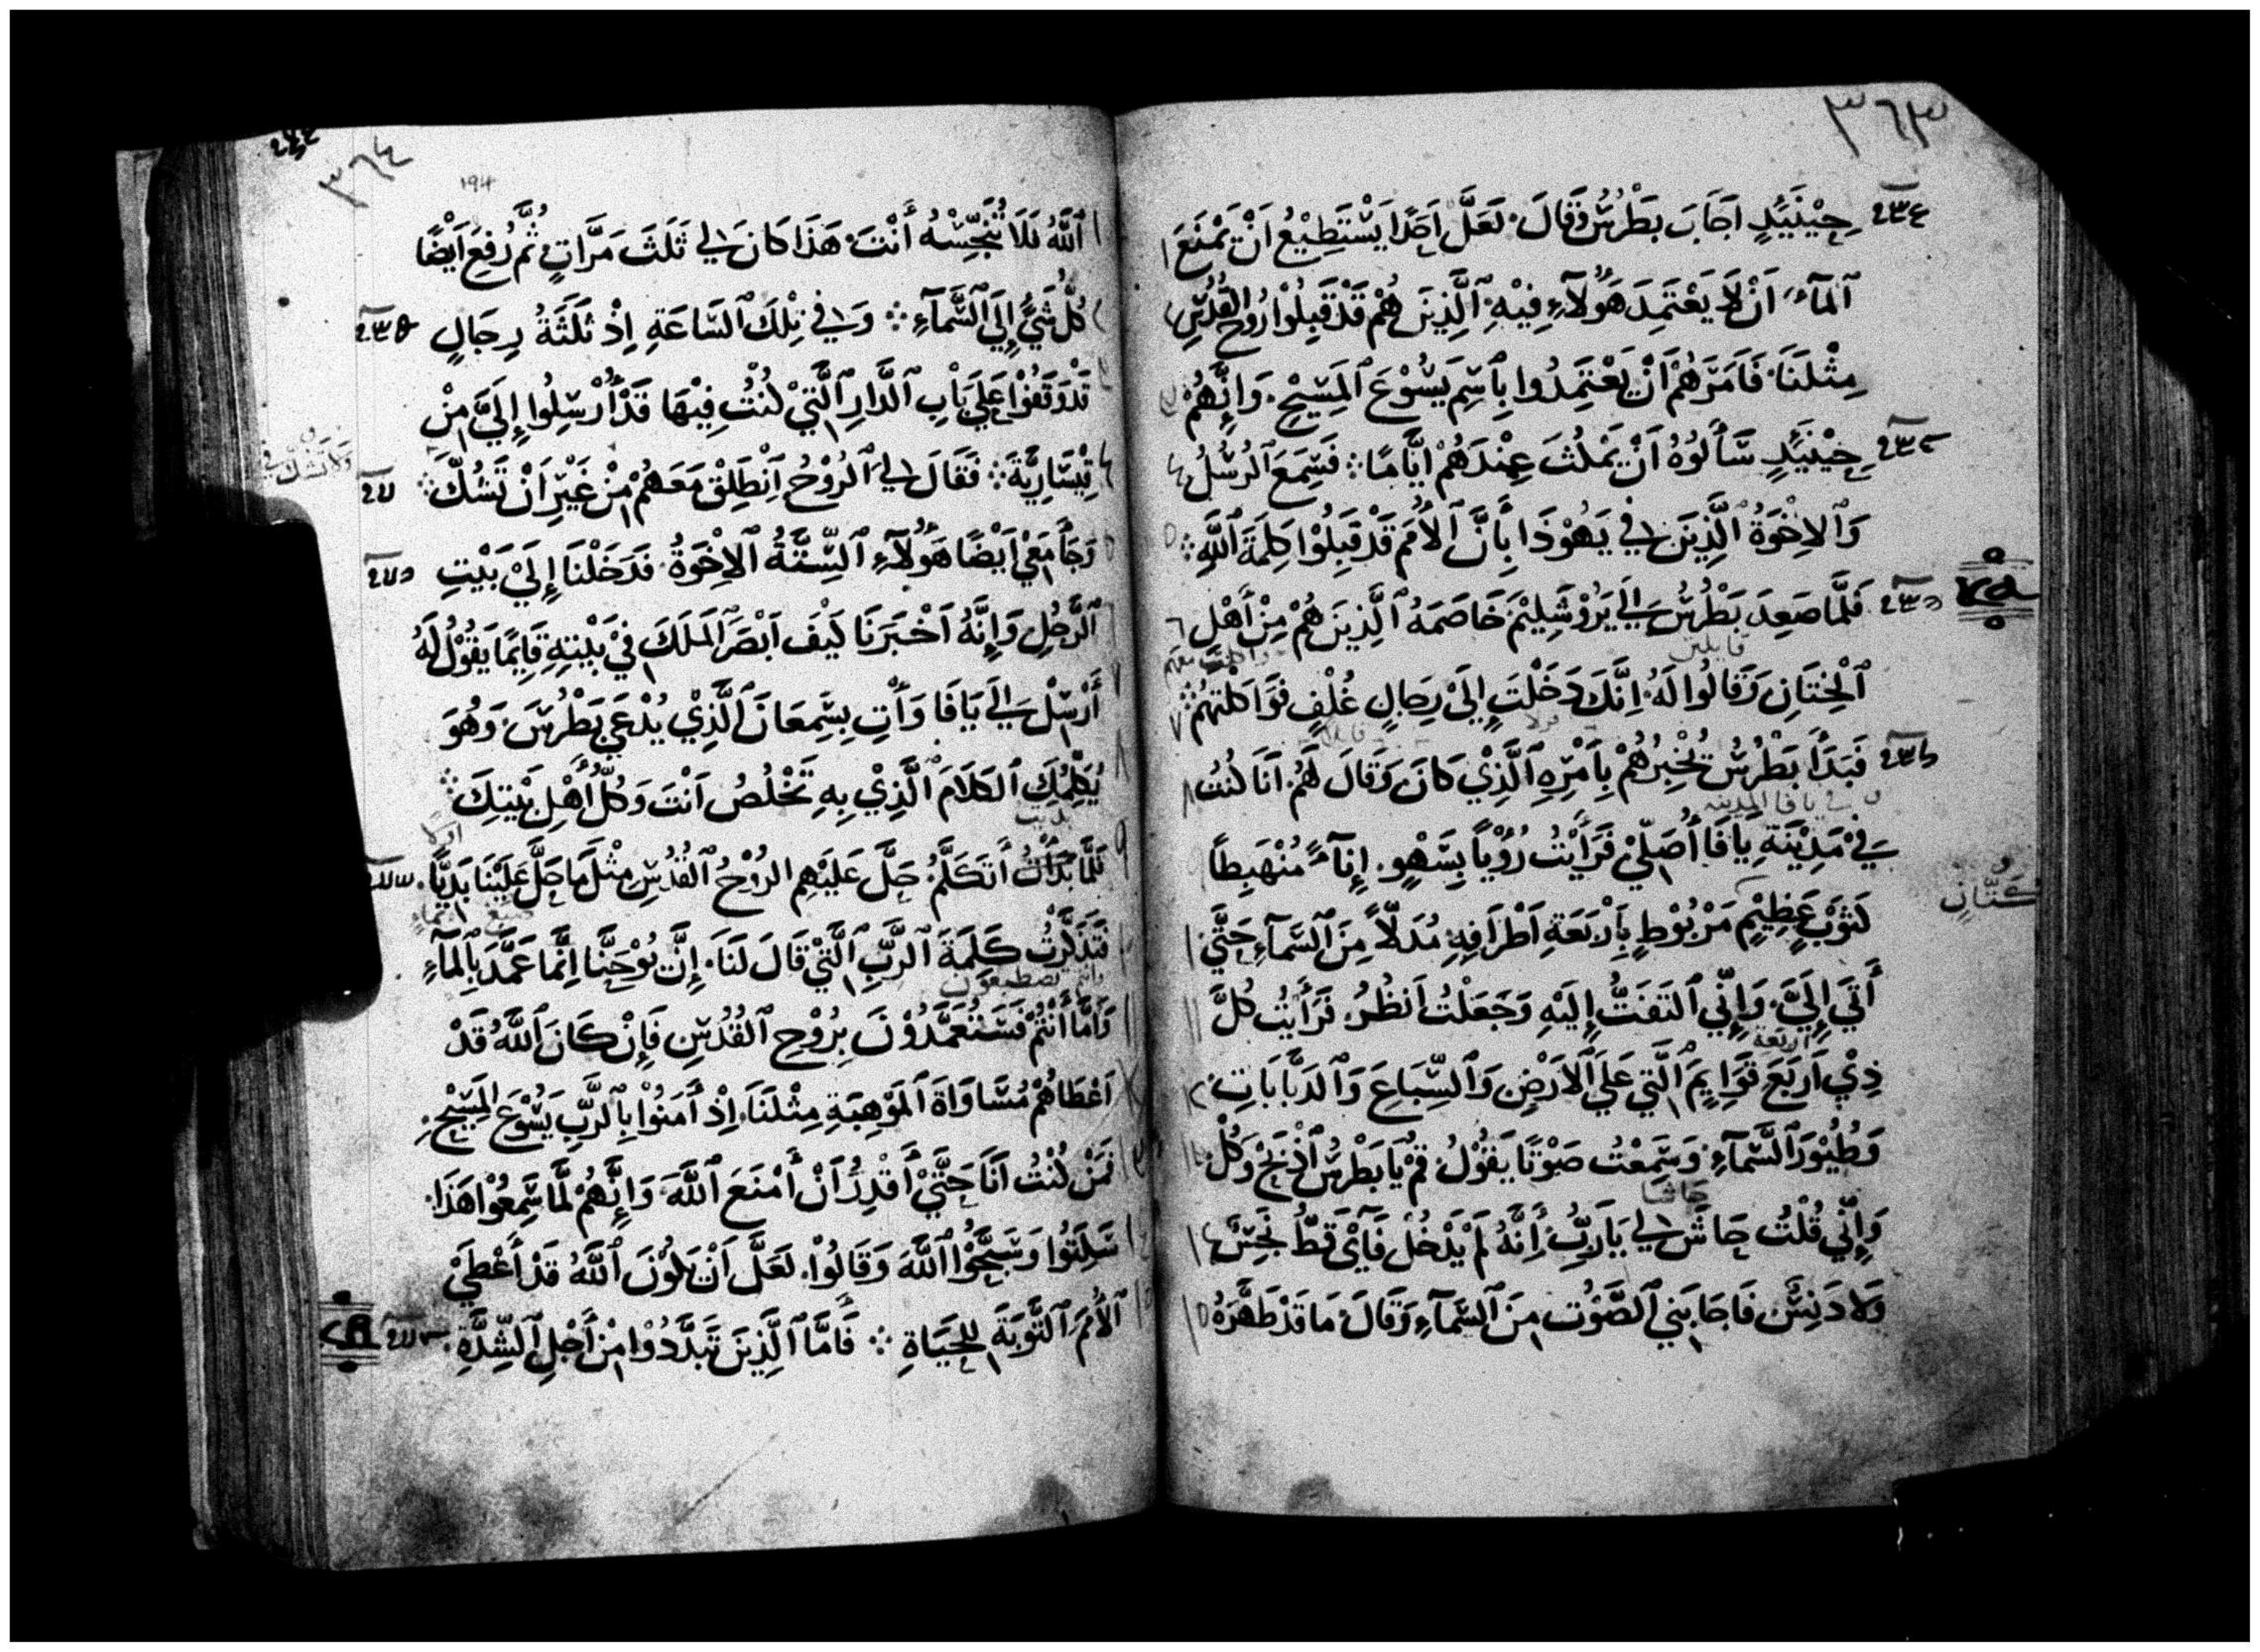 ٣٦٣
حِيْنَيِٕذٍ اجَابَ بَطْرُسُ وَقَالَ لَعَلَّ احَدًا يَسْتَطِيْعُ انْ يَمْنَعَ
ٱلمآءَ انْ لَا يَعْتَمِدَ هَؤُلآءِ فِيْهِ ٱلَّذِيَن هُمْ قَدْ قَبِلُوْا رُوحَ القُدُسِ
مِثْلَنَا فَامَرَهُمْ انْ يَعْتَمِدُوا بِٱسْمِ يَسُوْعَ ٱلمَسِيْحِ وَانِّهُمْ
حِيْنَيِٕذٍ سَأَلُوُهُ أَنْ يَمْكُثَ عِنْدَهُمْ ايَّامًا فَسَمِعَ ٱلرُسُلُ
وَٱلاِخْوَةُ ٱلَّذِيَن فِي يَهُوْذَا بِأَنَّ ٱلأُمَمَ قَدْ قَبِلُوْا كَلِمَةَ ٱللَّهِ
فَلَمَّا صَعِدَ بَطْرُسُ إلَي يَرُوْشَلِيْمَ خَاصَمَهُ ٱلَّذِيَن هُمْ مِنْ أَهْلِ
قايلين
ٱلْخِتَانِ وَقَالُوا لَهُ انَّكَ دَخَلْتَ إلَيَ رِجَالٍ غُلْفٍ فَوَاكَلْتَهُمْ
فَبَدَأَ بَطْرُسُ يُخْبِرُهُمْ بِٱمْرِهِ ٱلَّذِيْ كَانَ وَقَالَ لَهُمْ انَا كُنْتُ
في يافا المدينه
فِيْ مَدِيْنَةِ يافَا أُصَلِّيْ فَرَأَيْتُ رُؤْياً بِسَهْوٍ إِنآءً مُنْهَبِطًا
كَتَّان
كَثَوْبٍ عَظِيْمٍ مَرْبُوْطٍ بِأَرْبَعَةِ اطْرَافِهِ مُدَلَّاً مِنَ ٱلسَّمآءِ حَتَّيَ
أَتَي إِلَيَّ وَإِنِّي ٱلتَفَتُّ إِلَيْهِ وَجَعَلْتُ انظُرُ فَرَأَيْتُ كُلَّ
اربعة
ذِيْ ارْبَعَ قَوَايِٕمَ ٱلَّتِي عَلَي ٱلاَرْضِ وَٱلسِّبَاعَ وَٱلدَبَّابَاتِ
وَطُيُوْرَ ٱلسَّمآءِ وَسَمِعْتُ صَوْتًا يَقُوْلُ قُمْ يَا بَطْرُسُ ٱذْبَحْ وَكُلْ
حاشا
وَإِنِّي قُلْتُ حَاشَ لِي يَارَبُّ إِنَّهُ لَمْ يَدْخُلْ فَآيَ قَطُّ نَجِسٌ
وَلَا دَنِسٌ فَاجَابَنِي ٱلصَّوْتُ مِنَ ٱلسَّمآءِ وَقَالَ مَا قَدْ طَهَّرَهُ
٣٦٤
194
ٱللَّهُ فَلَا تُنَجِّسْهُ أَنْتَ هَذَا كَانَ لِي ثَلَثَ مَرَّاتٍ ثُمَّ رُفِعَ ايْضًا
كُلُّ شَيٍْ إِلَي ٱلسَّمآءِ وَفِي تِلْكَ ٱلسَّاعَةِ اِذْ ثَلَثَةُ رِجَالٍ
قَدْ وَقَفُوْا عَلَي بَاْبِ ٱلدَّارِ ٱلَّتِيْ كُنْتُ فِيْهَا قَدْ أُرْسِلُوا إِلَيَّ مِنْ
ولا تشك في
قِيْسَارِيَّةَ فَقَالَ لِي ٱلرُوْحُ انْطَلِقْ مَعَهُمْ مِنْ غَيْرِ انْ تَشُكَّ
وَجَآ مَعِيْ ايْضًا هَؤُلآءِ ٱلسِّتَّةُ ٱلاِخْوَةُ فَدَخَلْنَا إِلَيْ بَيْتِ
ٱلرَّجُلِ وَإِنَّهُ اخْبَرَنَا كَيْفَ ابْصَرَ ٱلمَلَكَ فِيْ بَيْتِهِ قَايِٕمًا يَقُوْلُ لَهُ
أَرْسِلْ إِلَي يَافَا وَأْتِ بِسِمِعَانَ ٱلَّذِيْ يُدْعَي بَطْرُسَ وَهُوَ
يُكَلِّمُكَ ٱلكَلَامَ ٱلَّذِيْ بِهِ تَخْلُصُ انْتَ وَكُلُّ أَهْلِ بَيْتِكَ
اولا
فَلَّمَا بَدَأْتُ أَتَكَلَّمُ حَلَّ عَلَيْهِمِ الرُوْحُ ٱلقُدُسِ مِثْلَمَا حَلَّ عَلَيْنَا بَدِيًّا
فَتَذَكَّرْتُ كَلِمَةَ ٱلرَّبِّ ٱلَّتِيْ قَالَ لَنَا إِنَّ يُوْحَنَّا اِنَّمَا عَمَّدَ بِٱلمآءِ
وانتم تصطبغون
وَامَّا أَنْتُمْ فَسَتُعَمَّدُوْنَ بِرُوْحِ ٱلقُدُسِ فَإِنْ كَانَ ٱللَّهُ قَدْ
اعْطَاهُمْ مُسَاوَاةَ ٱلمَوْهِبَةِ مِثْلَنَا اِذْ أَمَنُوْا بِٱلرَّبِّ يَسُوْعَ المَسِيْحِ
فَمَنْ كُنْتُ أَنَا حَتَّيْ أَقْدِرُ أَنْ أَمْنَعَ ٱللَّهَ وَإِنَّهُمْ لَمَّا سَمِعُوْا هَذَا
سَكَتُوا وَسَبَّحُوْا ٱللَّهَ وَقَالُوْا لَعَلَّ انْ يَكُوْنَ ٱللَّهُ قَدْ أَعْطَيْ
ٱلأُمَمَ ٱلتَّوْبَةَ لِلحَيَاةِ فَأَمَّا ٱلَّذِيَن تَبَدَّدُوْا مِنْ أَجْلِ ٱلشِّدَّةِ